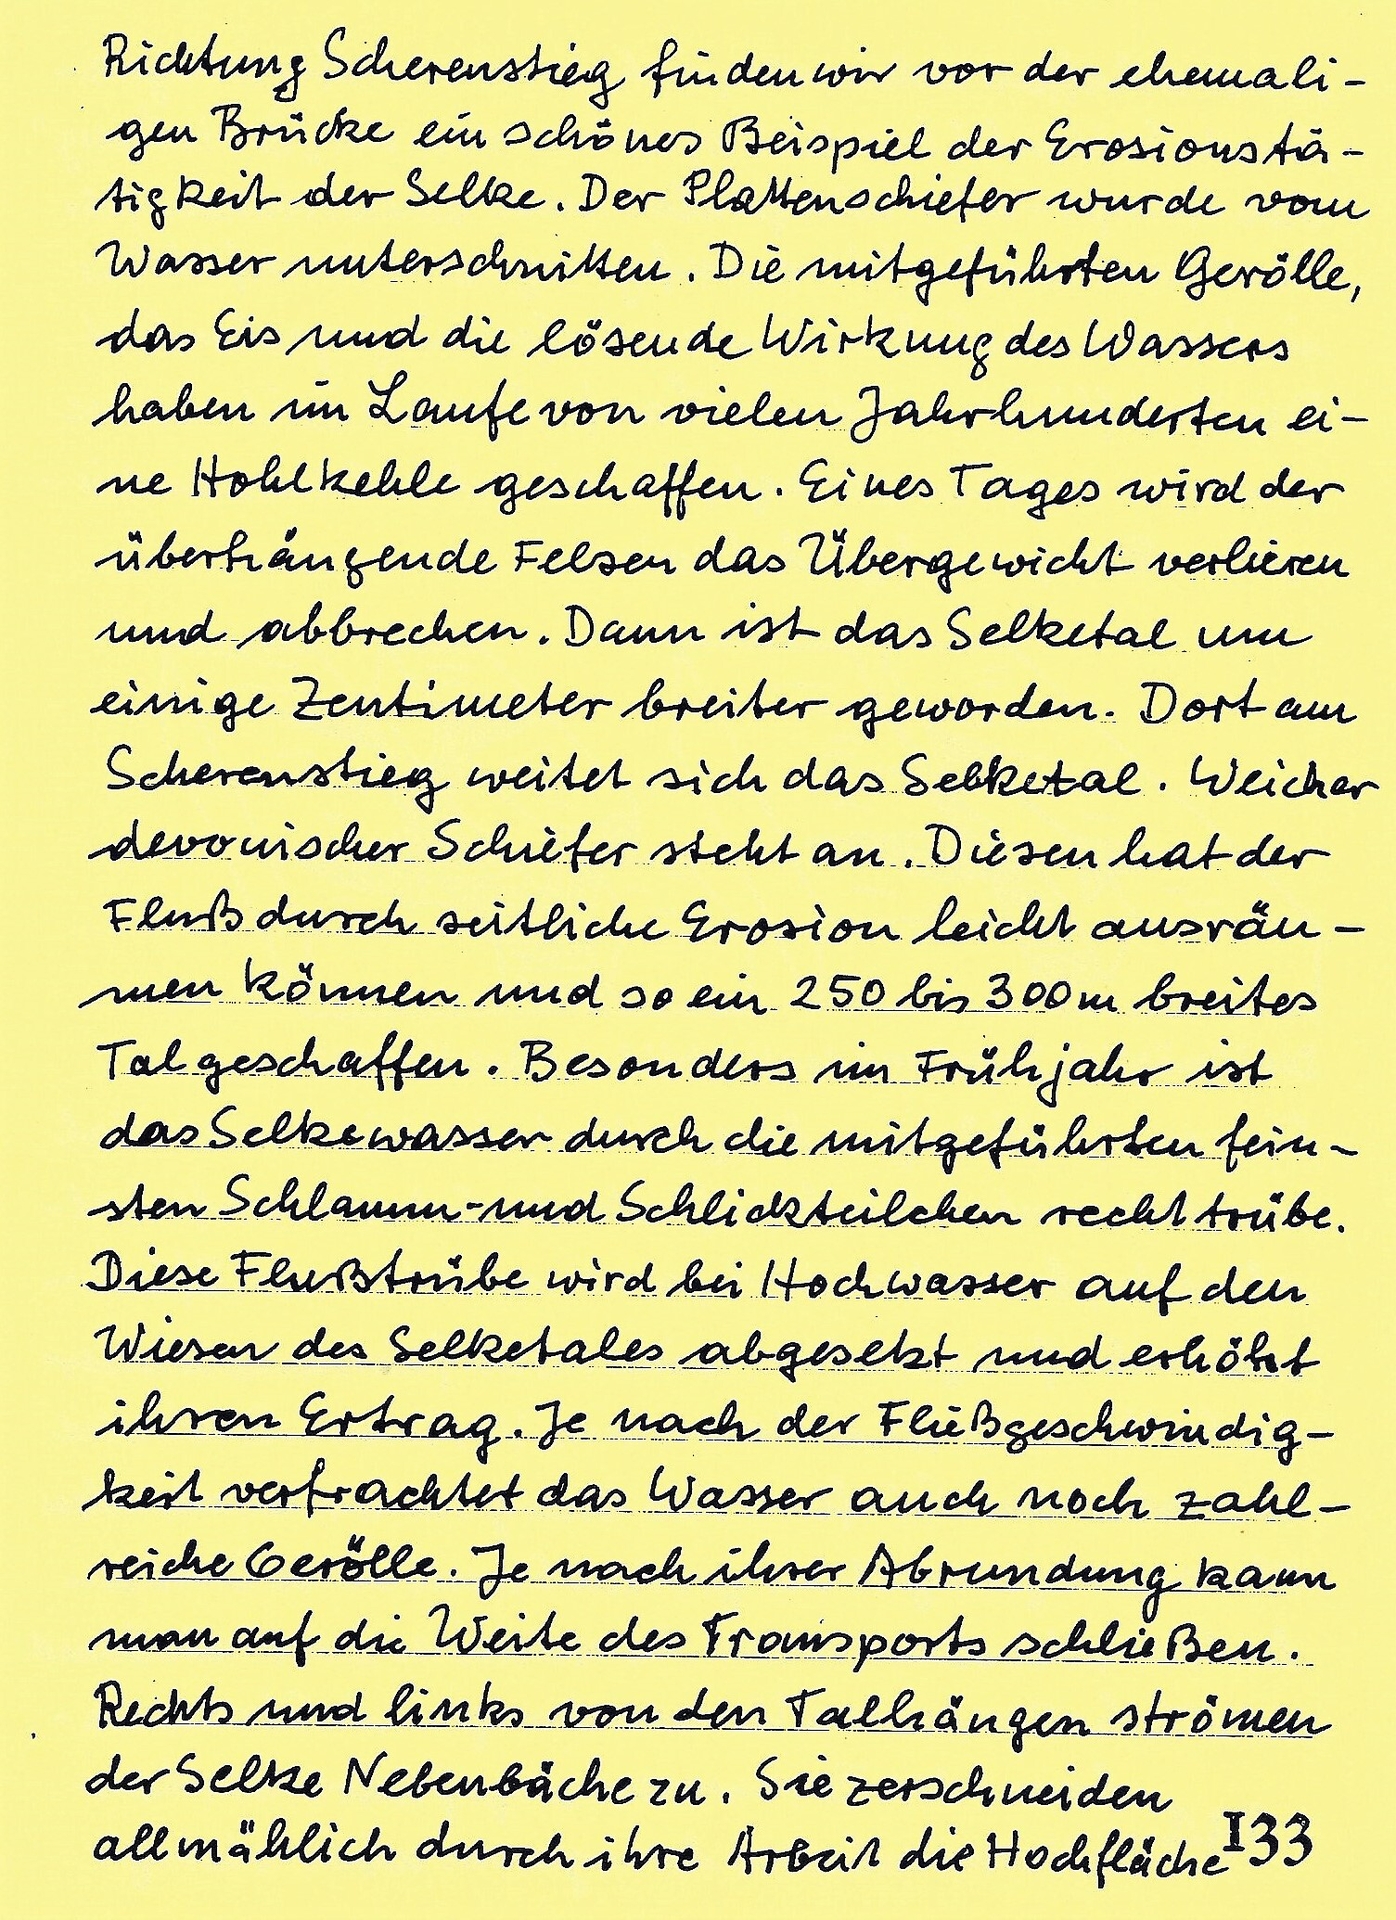 Richtung Scherenstieg finden wir vor der ehemali-
gen Brücke ein schönes Beispiel der Erosionstä-
tigkeit der Selke. Der Plattenschiefer wurde vom
Wasser unterschnitten. Die mitgeführten Gerölle,
das Eis und die lösende Wirkung des Wassers
haben im Laufe von vielen Jahrhunderten ei-
ne Hohlkehle geschaffen. Eines Tages wird der
überhängende Felsen das Übergewicht verlieren
und abbrechen. Dann ist das Selketal um
einige Zentimeter breiter geworden. Dort am
Scherenstieg weitet sich das Selketal. Weicher
devonischer Schiefer steht an. Diesen hat der
Fluß durch seitliche Erosion leicht ausräu-
men können und so ein 250 bis 300m breites
Tal geschaffen. Besonders im Frühjahr ist
das Selkewasser durch die mitgeführten fein-
sten Schlamm- und Schlickteilchen recht trübe.
Diese Flußtrübe wird bei Hochwasser auf den
Wiesen des Selketales abgesetzt und erhöht
ihren Ertrag. Je nach der Fließgeschwindig-
keit verfrachtet das Wasser auch noch zahl-
reiche Gerölle. Je nach ihrer Abrundung kann
man auf die Weite des Transports schließen.
Rechts und links von den Talhängen strömen
der Selke Nebenbäche zu. Sie zerschneiden
allmählich durch ihre Arbeit die Hochfläche
133